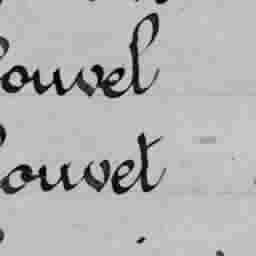 ouvel
ouvet